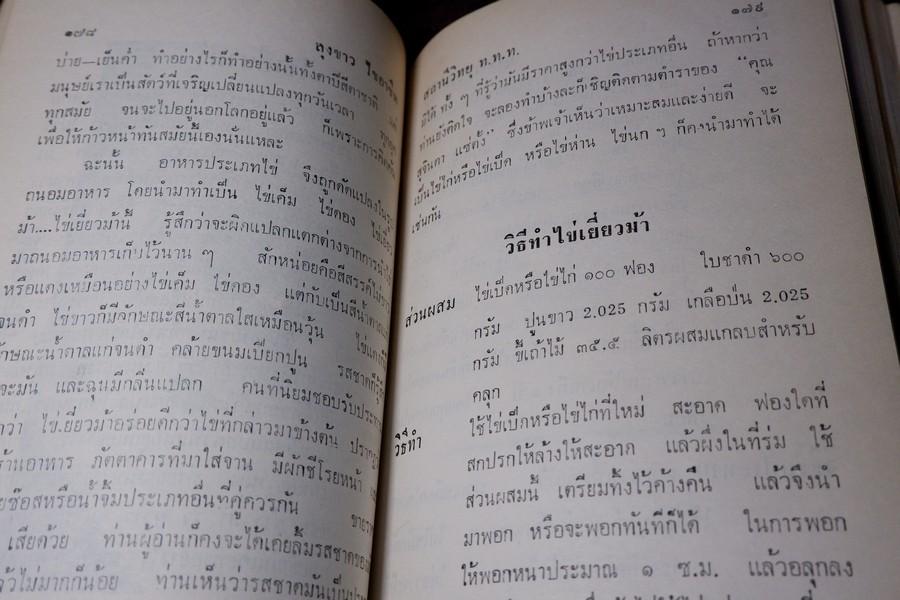 ๑๗๘
ลุงขาว ไขอาชีพ
บ่าย—เย็นค่ำ ทำอย่างไรก็ทำอย่างนั้นทั้งตาปีสีตาชาติ
มนุษย์เราเป็นสัตว์ที่เจริญเปลี่ยนแปลงทุกวันเวลา
ทุกสมัย จนจะไปอยู่นอกโลกอยู่แล้ว ก็เพราะการคิดค้น
เพื่อให้ก้าวหน้าทันสมัยนี้เองนั่นแหละ
ฉะนั้น อาหารประเภทไข่ จึงถูกดัดแปลงในรูป
ถนอมอาหาร โดยนำมาทำเป็น ไข่เค็ม ไข่ดอง ไข่เยี่ยว
ม้า....ไข่เยี่ยวม้านี้ รู้สึกว่าจะผิดแปลกแตกต่างจากการนำไข่
มาถนอมอาหารเก็บไว้นาน ๆ สักหน่อยคือสีสรรค์ไม่
หรือแดงเหมือนอย่างไข่เค็ม ไข่ดอง แต่กับเป็นสีน้ำตาล
จนดำ ไข่ขาวก็มีลักษณะสีน้ำตาลใสเหมือนวุ้น ไข่แดงก็มี
ลักษณะน้ำตาลแก่จนดำ คล้ายขนมเปียกปูน รสชาดก็
จะมัน และฉุนมีกลิ่นแปลก คนที่นิยมชอบรับประทาน
กว่า ไข่เยี่ยวม้าอร่อยดีกว่าไข่ที่กล่าวมาข้างต้น ปรากฏ
ร้านอาหาร ภัตตาคารที่มาใส่จาน มีผักชีโรยหน้า
ซ๊อสหรือน้ำจิ้มประเภทอื่นที่คู่ควรกัน ขายรา
เสียด้วย ท่านผู้อ่านก็คงจะได้เคยลิ้มรสชาดของ
แล้วไม่มากก็น้อย ท่านเห็นว่ารสชาดมันเป็น
๑๗๙
สถานีวิทยุ ท.ท.ท.
มิได้ ทั้ง ๆ ที่รู้ว่ามันมีราคาสูงกว่าไข่ประเภทอื่น ถ้าหากว่า
ท่านยังติดใจ จะลองทำบ้างละก็เชิญติดตามตำราของ “คุณ
สุจินดา แซ่ตั้ง” ซึ่งข้าพเจ้าเห็นว่าเหมาะสมและง่ายดี จะ
เป็นไข่ไก่หรือไข่เป็ด หรือไข่ห่าน ไข่นก ๆ ก็คงนำมาทำได้
เช่นกัน
วิธีทำไข่เยี่ยวม้า
ส่วนผสม ไข่เป็ดหรือไข่ไก่ ๑๐๐ ฟอง ใบชาดำ ๖๐๐
กรัม ปูนขาว 2.025 กรัม เกลือป่น 2.025
กรัม ขี้เถ้าไม้ ๓๕.๕ ลิตรผสมแกลบสำหรับ
คลุก
วิธีทำ ใช้ไข่เป็ดหรือไข่ไก่ที่ใหม่ สะอาด ฟองใดที่
สกปรกให้ล้างให้สะอาด แล้วผึ่งในที่ร่ม ใช้
ส่วนผสมนี้ เตรียมทิ้งไว้ค้างคืน แล้วจึงนำ
มาพอก หรือจะพอกทันทีก็ได้ ในการพอก
ให้พอกหนาประมาณ ๑ ซ.ม. แล้วอลุกลง